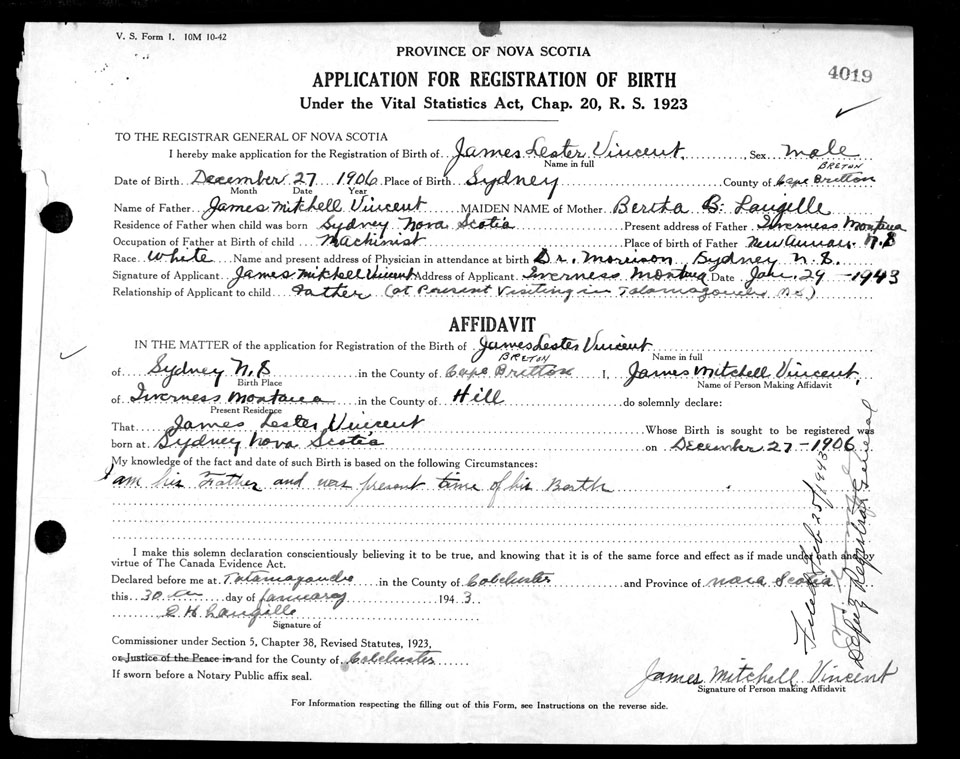 V. S. Form 1. 10M 10-42
PROVINCE OF NOVA SCOTIA
4019
APPLICATION FOR REGISTRATION OF BIRTH
Under the Vital Statistics Act, Chap. 20, R. S. 1923
TO THE REGISTRAR GENERAL OF NOVA SCOTIA
I hereby make application for the Registration of Birth of James Lester Vincent. Sex male
Name in full
BRETON
Date of Birth December 27 1906 Place of Birth Sydney County of Cape Britton
Month Date Year
Name of Father James Mitchell Vincent MAIDEN NAME of Mother Bertha B. Langille
Residence of Father when child was born Sydney Nova Scotia Present address of Father Inverness Montana
Occupation of Father at Birth of child Machinist Place of birth of Father New Annan. N.S
Race White Name and present address of Physician in attendance at birth Dr. Morrison Sydney N.S.
Signature of Applicant James Mitchell Vincent Address of Applicant Inverness Montana Date Jan. 29 - 1943
Relationship of Applicant to child Father (at Present Visiting in Tatamagouche N.S.)
AFFIDAVIT
IN THE MATTER of the application for Registration of the Birth of James Lester Vincent
BRETON Name in full
of Sydney N.S in the County of Cape Britton I, James Mitchell Vincent,
Birth Place Name of Person Making Affidavit
of Inverness Montana in the County of Hill do solemnly declare:
Present Residence
That James Lester Vincent Whose Birth is sought to be registered was
born at Sydney Nova Scotia on December 27-1906
My knowledge of the fact and date of such Birth is based on the following Circumstances:
I am his Father and was present time of his Berth
I make this solemn declaration conscientiously believing it to be true, and knowing that it is of the same force and effect as if made under oath and by
virtue of The Canada Evidence Act.
Declared before me at Tatamagouche in the County of Colchester and Province of Nova Scotia
this 30 day of January 1943.
Langille
Signature of
Commissioner under Section 5, Chapter 38, Revised Statutes, 1923,
or Justice of the Peace in and for the County of Colchester
If sworn before a Notary Public affix seal.
James Mitchell Vincent
Signature of Person making Affidavit
For Information respecting the filling out of this Form, see Instructions on the reverse side.
Filed Feb 25/1943
Deputy Registrar General